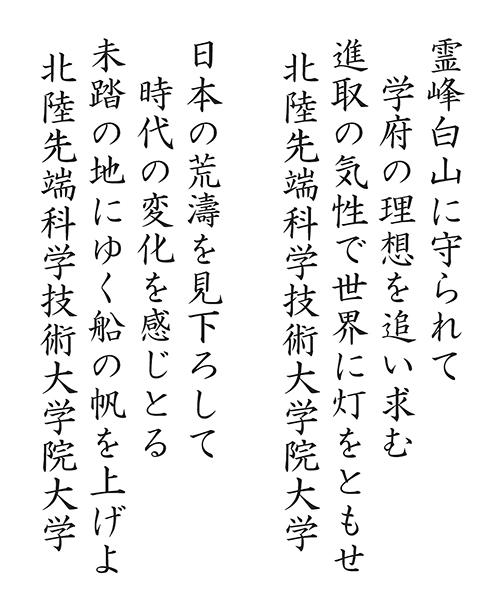 霊峰白山に守られて
学府の理想を追い求む
進取の気性で世界に灯をともせ
北陸先端科学技術大学院大学
日本の荒濤を見下ろして
時代の変化を感じとる
未踏の地にゆく船の帆を上げよ
北陸先端科学技術大学院大学